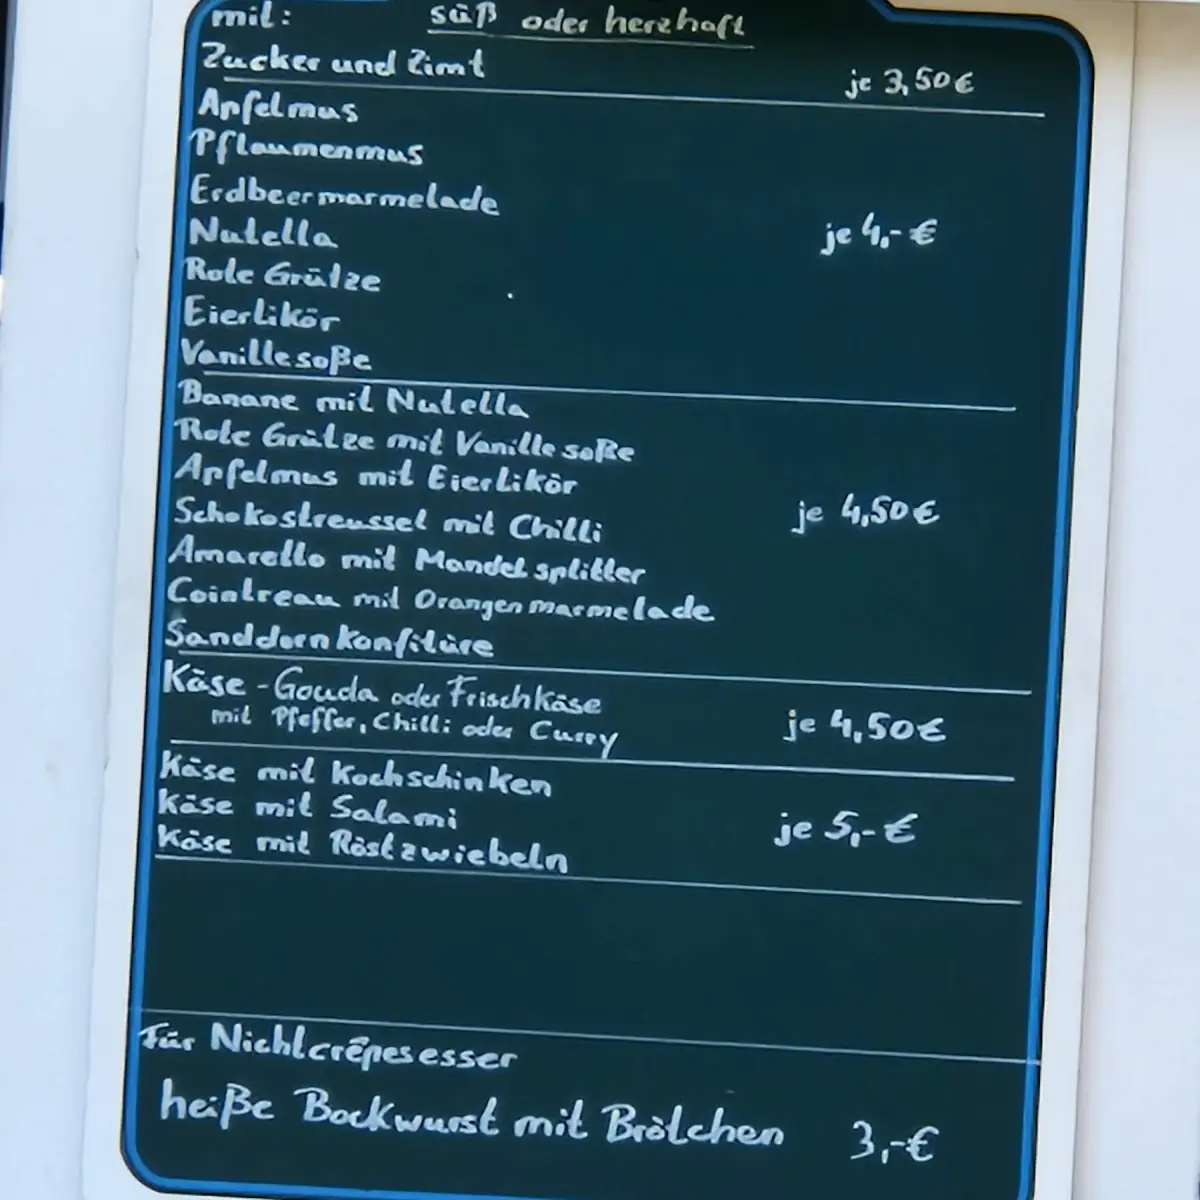 mit: süß oder herzhaft
Zucker und Zimt je 3,50€
Apfelmus
Pflaumenmus
Erdbeermarmelade
Nutella je 4,-€
Rote Grütze
Eierlikör
Vanillesoße
Banane mit Nutella
Rote Grütze mit Vanillesoße
Apfelmus mit Eierlikör
Schokostreussel mit Chilli je 4,50€
Amaretto mit Mandelsplitter
Cointreau mit Orangenmarmelade
Sanddornkonfitüre
Käse - Gouda oder Frischkäse
mit Pfeffer, Chilli oder Curry je 4,50€
Käse mit Kochschinken
Käse mit Salami je 5,-€
Käse mit Röstzwiebeln
Für Nichtcrêpesesser
heiße Bockwurst mit Brötchen 3,-€